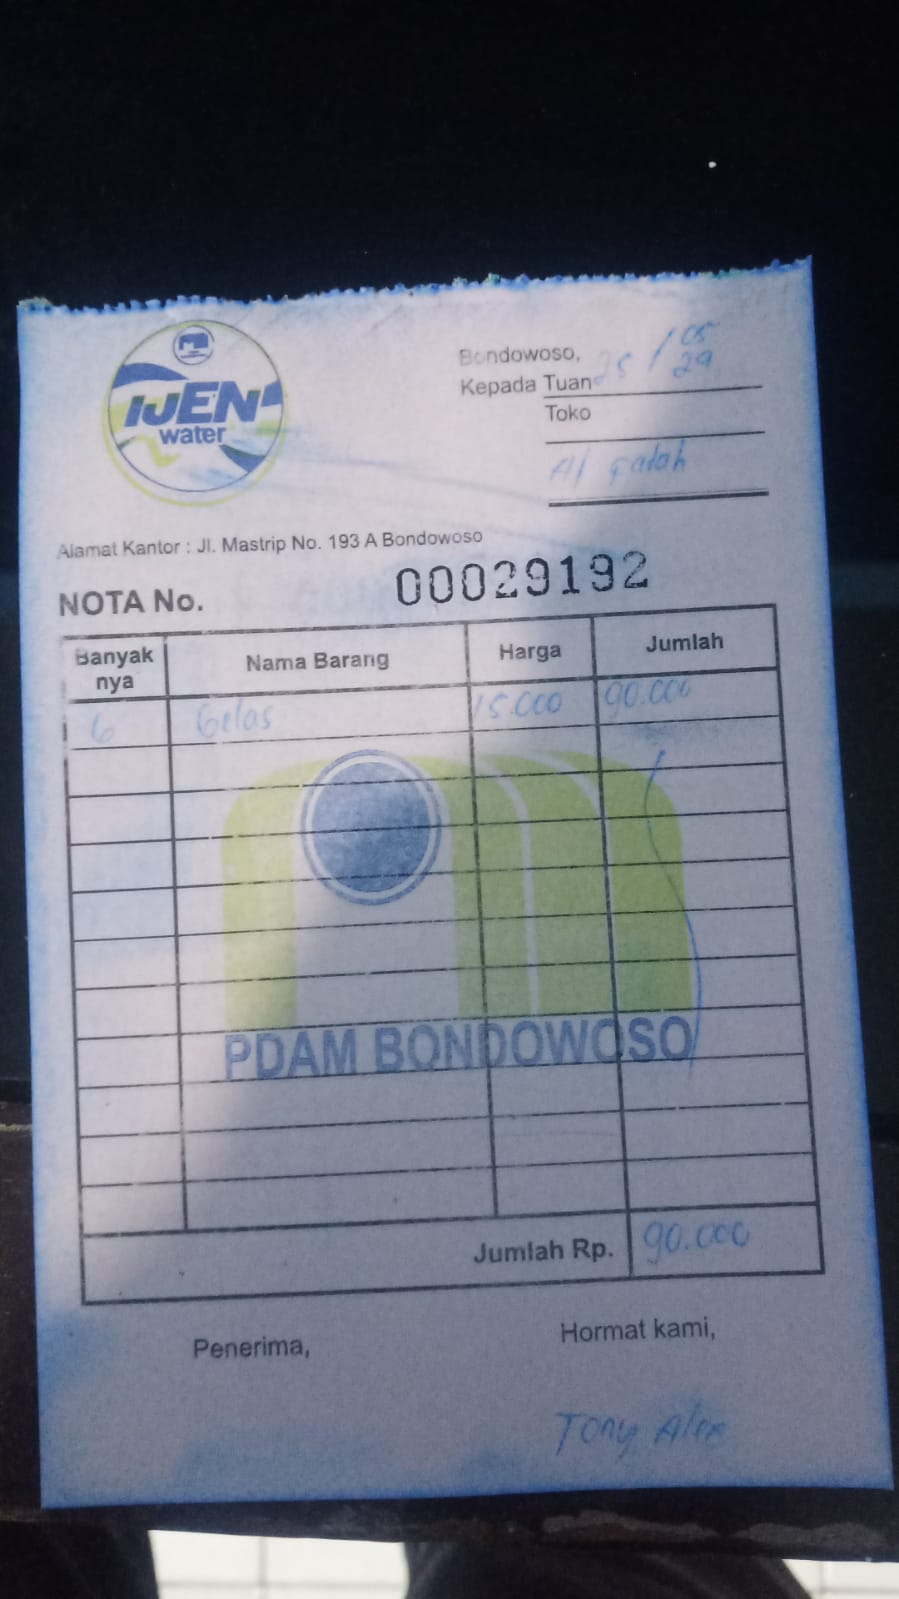 IJEN
water
Bondowoso, 25 / 05
29
Kepada Tuan
Toko
Al
Alamat Kantor : Jl. Mastrip No. 193 A Bondowoso
NOTA No. 00029192
Banyak nya Nama Barang Harga Jumlah
6 Gelas 15.000 90.000
PDAM BONDOWOSO
Jumlah Rp. 90.000
Penerima, Hormat kami,
Tony